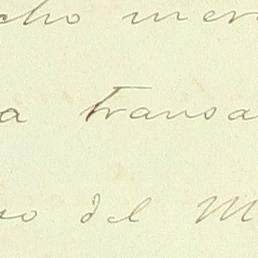 cho mer
a transa
so del M